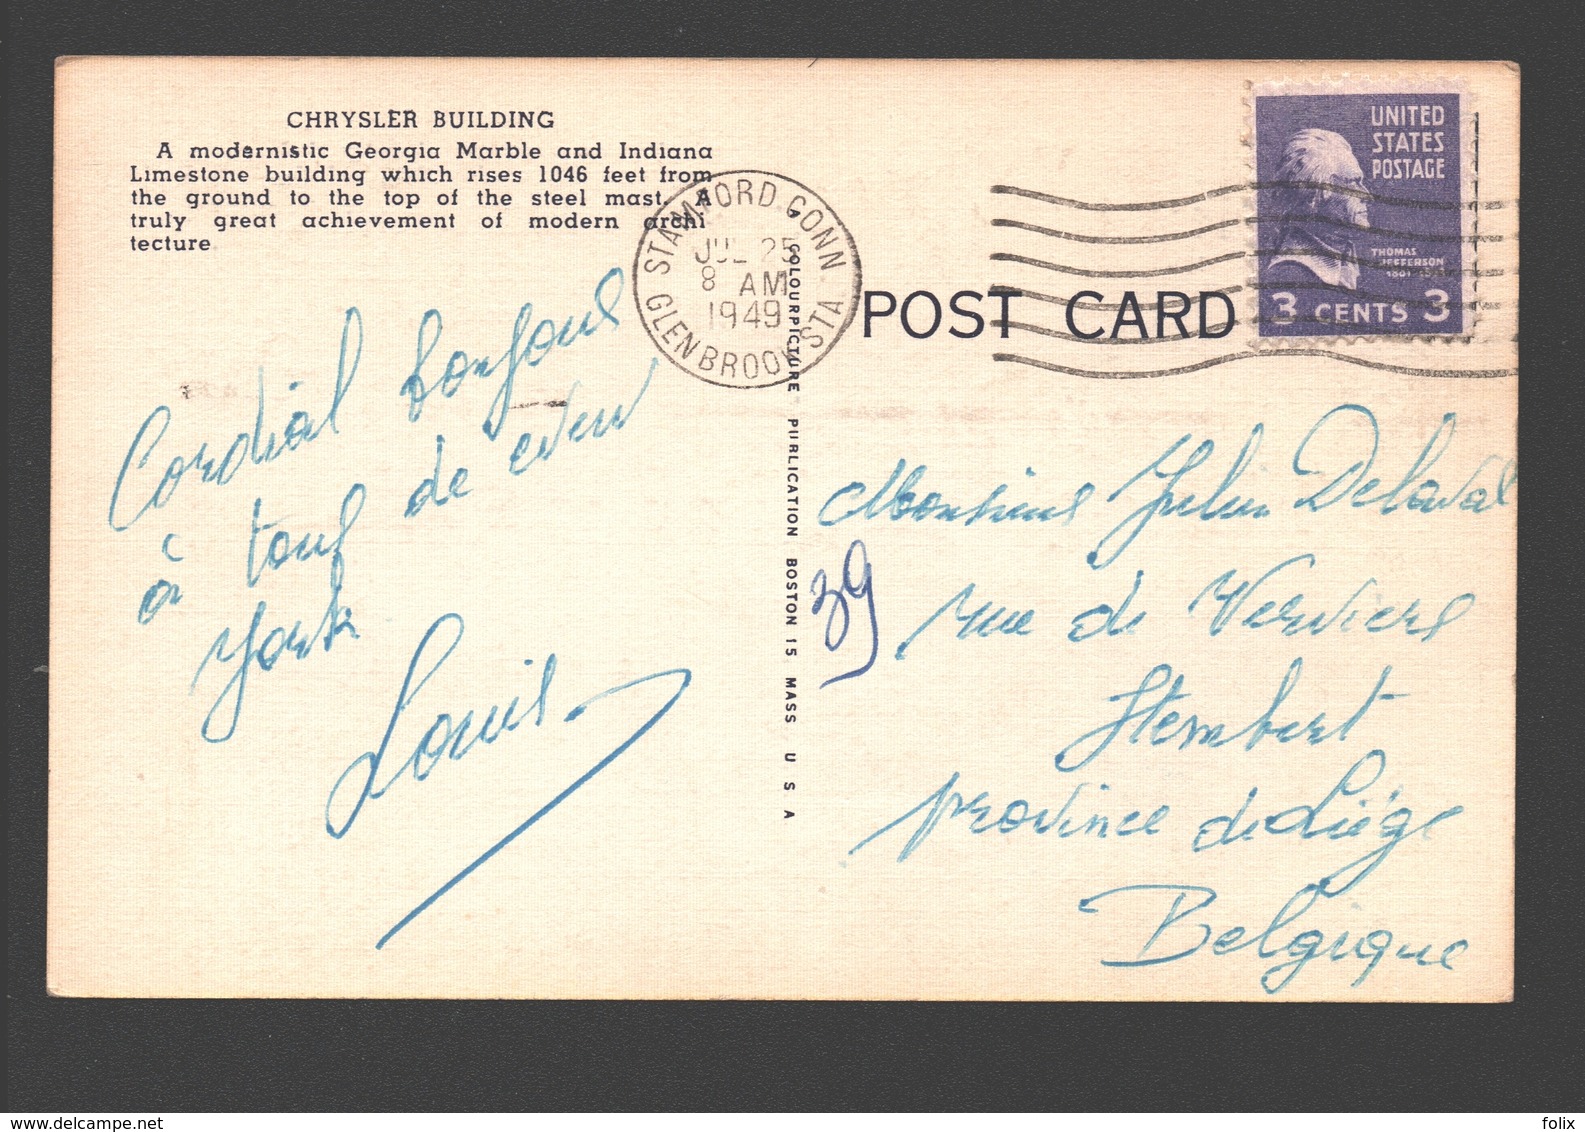 CHRYSLER BUILDING
A modernistic Georgia Marble and Indiana
Limestone building which rises 1046 feet from
the ground to the top of the steel mast. A
truly great achievement of modern archi
tecture
Cordial bonjour
à tous de New
York
Louis
STAMFORD, CONN
JUL 25
8 AM
1949
GLENBROOK STA
COLOURPICTURE PUBLICATION BOSTON 15 MASS U S A
POST CARD
UNITED
STATES
POSTAGE
THOMAS
JEFFERSON
3 CENTS 3
39
Monsieur Julien Delaval
rue de Verviers
Stembert
province de Liège
Belgique
delcampe.net
folix